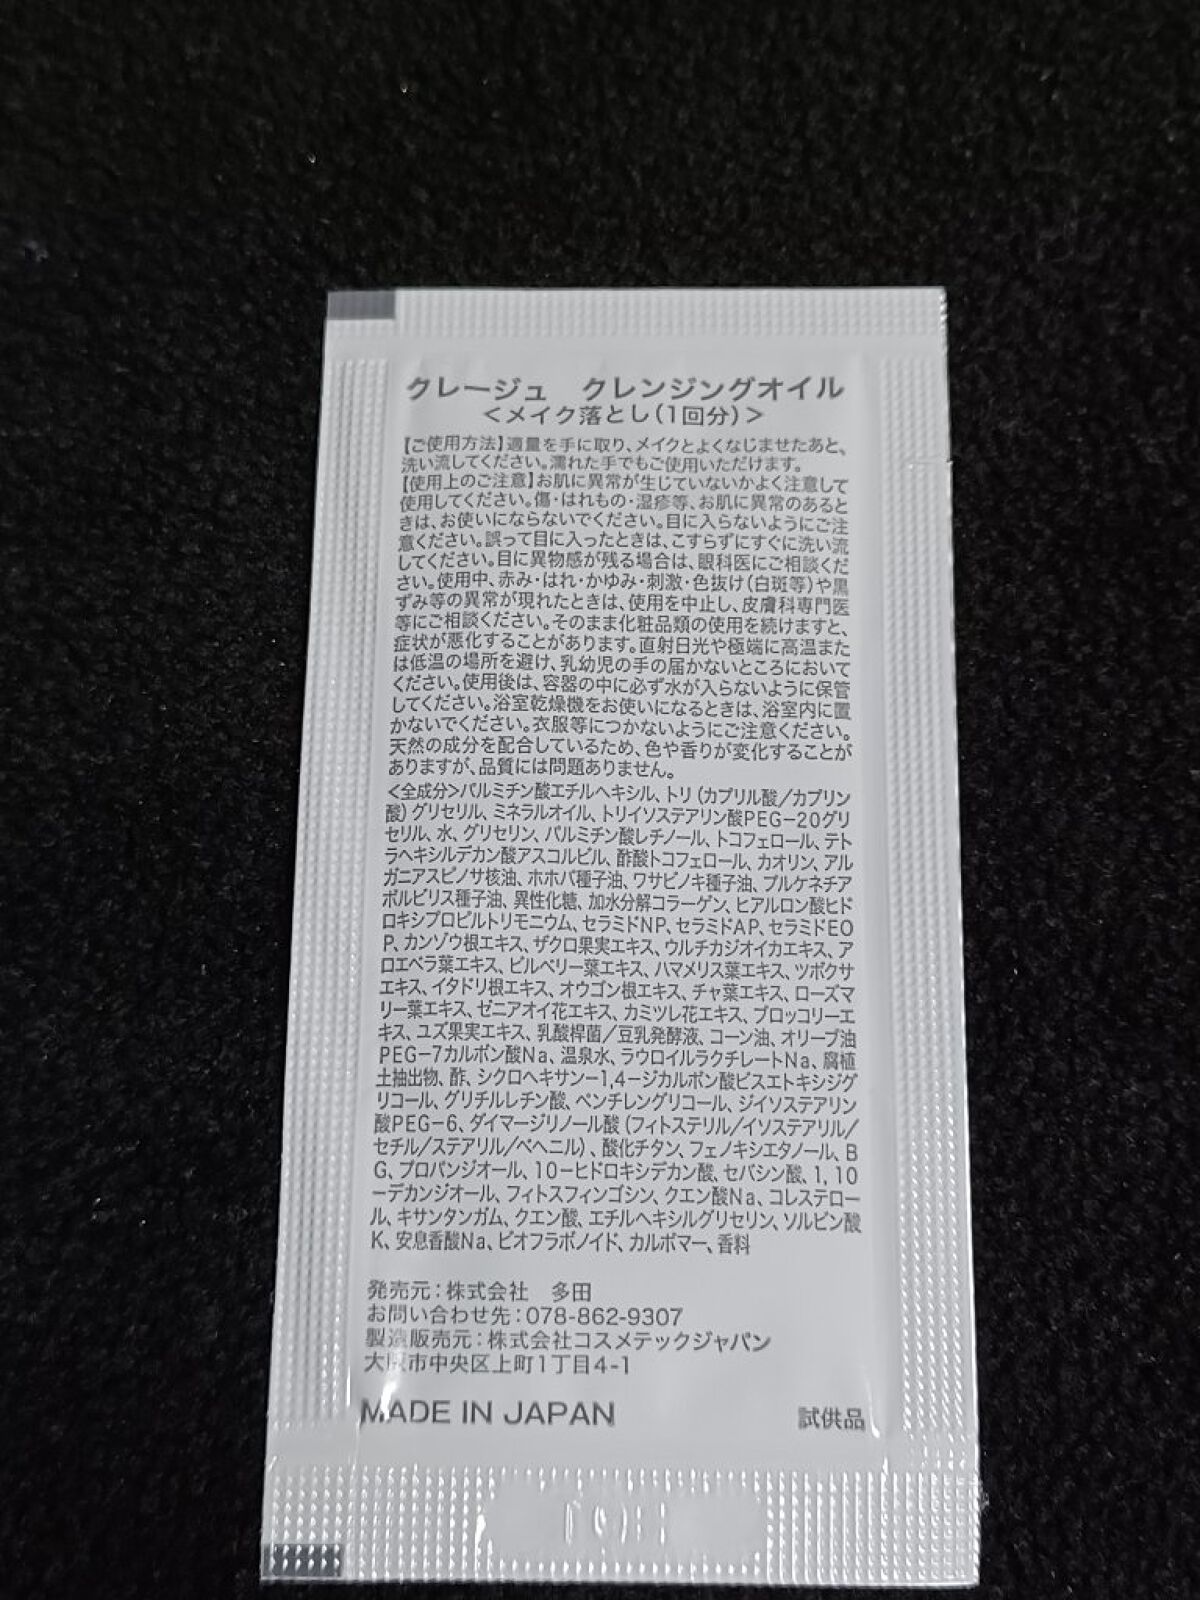 クレージュ　クレンジングオイル
＜メイク落とし(1回分)＞
【ご使用方法】適量を手に取り、メイクとよくなじませたあと、
洗い流してください。濡れた手でもご使用いただけます。
【使用上のご注意】お肌に異常が生じていないかよく注意して
使用してください。傷・はれもの・湿疹等、お肌に異常のあると
きは、お使いにならないでください。目に入らないようにご注
意ください。誤って目に入ったときは、こすらずにすぐに洗い流
してください。目に異物感が残る場合は、眼科医にご相談くだ
さい。使用中、赤み・はれ・かゆみ・刺激・色抜け(白斑等)や黒
ずみ等の異常が現れたときは、使用を中止し、皮膚科専門医
等にご相談ください。そのまま化粧品類の使用を続けますと、
症状が悪化することがあります。直射日光や極端に高温また
は低温の場所を避け、乳幼児の手の届かないところにおいて
ください。使用後は、容器の中に必ず水が入らないように保管
してください。浴室乾燥機をお使いになるときは、浴室内に置
かないでください。衣服等につかないようにご注意ください。
天然の成分を配合しているため、色や香りが変化することが
ありますが、品質には問題ありません。
＜全成分＞パルミチン酸エチルヘキシル、トリ(カプリル酸/カプリン
酸)グリセリル、ミネラルオイル、トリイソステアリン酸PEG-20グリ
セリル、水、グリセリン、パルミチン酸レチノール、トコフェロール、テト
ラヘキシルデカン酸アスコルビル、酢酸トコフェロール、カオリン、アル
ガニアスピノサ核油、ホホバ種子油、ワサビノキ種子油、プルケネチア
ボルビリス種子油、異性化糖、加水分解コラーゲン、ヒアルロン酸ヒド
ロキシプロピルトリモニウム、セラミドNP、セラミドAP、セラミドEO
P、カンゾウ根エキス、ザクロ果実エキス、ウルチカジオイカエキス、ア
ロエベラ葉エキス、ビルベリー葉エキス、ハマメリス葉エキス、ツボクサ
エキス、イタドリ根エキス、オウゴン根エキス、チャ葉エキス、ローズマ
リー葉エキス、ゼニアオイ花エキス、カミツレ花エキス、ブロッコリーエ
キス、ユズ果実エキス、乳酸桿菌/豆乳発酵液、コーン油、オリーブ油
PEG-7カルボン酸Na、温泉水、ラウロイルラクチレートNa、腐植
土抽出物、酢、シクロヘキサン-1,4-ジカルボン酸ビスエトキシジグ
リコール、グリチルレチン酸、ペンチレングリコール、ジイソステアリン
酸PEG-6、ダイマージリノール酸(フィトステリル/イソステアリル/
セチル/ステアリル/ベヘニル)、酸化チタン、フェノキシエタノール、B
G、プロパンジオール、10-ヒドロキシデカン酸、セバシン酸、1,10
-デカンジオール、フィトスフィンゴシン、クエン酸Na、コレステロー
ル、キサンタンガム、クエン酸、エチルヘキシルグリセリン、ソルビン酸
K、安息香酸Na、ビオフラボノイド、カルボマー、香料
発売元：株式会社　多田
お問い合わせ先：078-862-9307
製造販売元：株式会社コスメテックジャパン
大阪市中央区上町1丁目4-1
MADE IN JAPAN
試供品